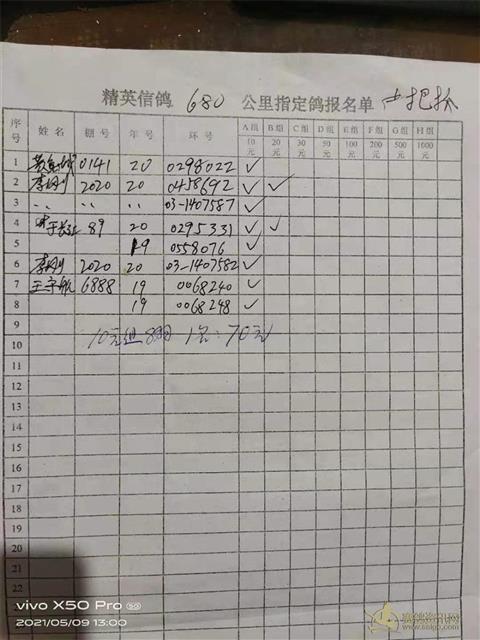 精英信鸽 680 公里指定鸽报名单
序号 姓名 棚号 年号 环号 A组10元 B组20元 C组30元 D组50元 E组100元 F组200元 G组500元 H组1000元
1 0141 20 0298022 ✓
2 2020 20 0458692 ✓ ✓
3 〃 〃 〃 03-1407587 ✓
4 89 20 0295331 ✓ ✓
5 19 0558076 ✓
6 2020 20 03-1407582 ✓
7 王守航 6888 19 0068240 ✓
8 19 0068248 ✓
9
10 10元组8羽 1名:70元
11
12
13
14
15
16
17
18
19
20
21
22
vivo X50 Pro
2021/05/09 13:00
赛鸽资讯网